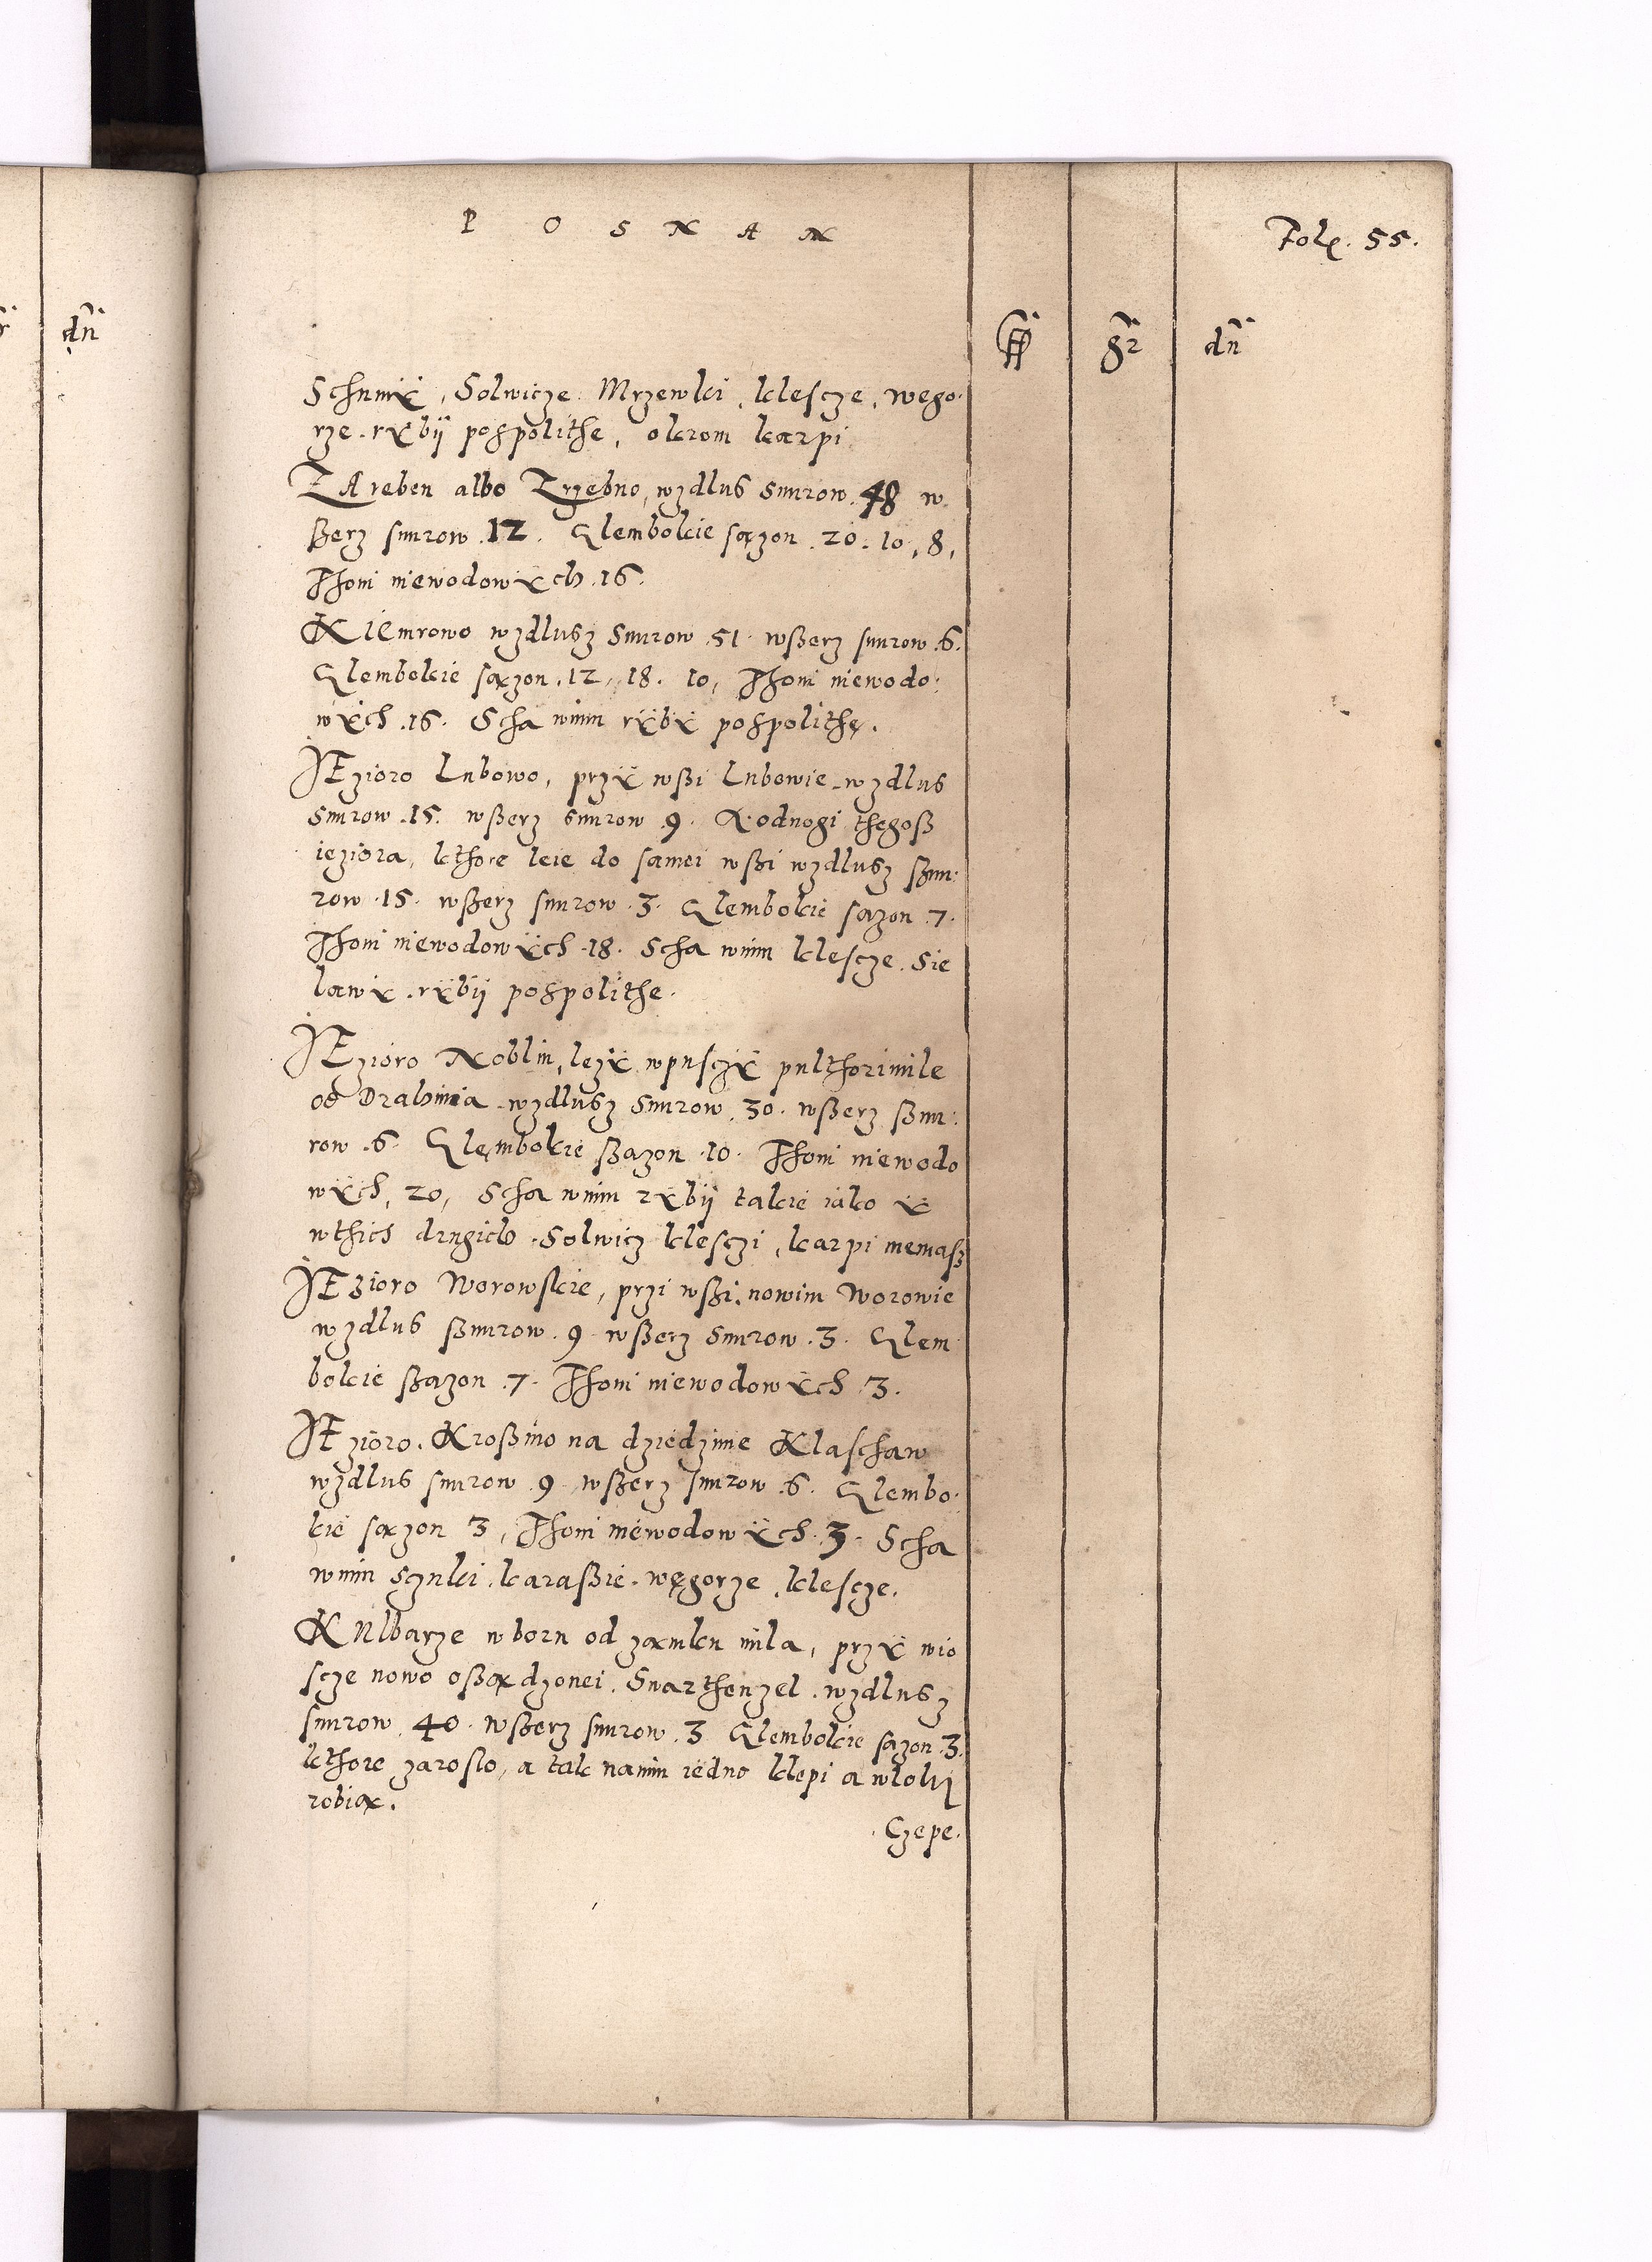 P O S N A N
Fol. 55.
gr dn
dn
Schumÿ, Solwicze Mrzewki, klescze, wego.
rze. rÿbij pospolithe, okrom karpi
ZAreben albo Trzebno, wzdlus snurow. 48 w.
ßerz snurow. 12. Glembokie sązon. 20. 10, 8,
Thoni niewodowÿch. 16.
KIEmrowo wzdlusz snurow 51. wßerz snurow. 6.
Glembokie sązon. 12, 18. 10, Thoni niewodo:
wÿch. 16. Scha wnim rÿbÿ pospolithe.
IEzioro Lubowo, przÿ wßi Lubowie. wzdlus
snurow. 15. wßerz snurow 9. A odnogi thegoß
ieziora, kthore leie do samei wßi wzdlusz ßnu:
row. 15. wßerz snurow. 3. Glembokie sazon 7.
Thoni niewodowÿch. 18. Scha wnim klescze. Sie
lawÿ. rÿbij pospolithe.
IEzioro Noblin, lezÿ wpusczÿ pulthorimile
od Drahimia. wzdlusz snurow. 30. wßerz ßnu:
row. 6. Glembokie ßazon. 10. Thoni niewodo
wÿch, 20, Scha wnim rÿbij takie iako ÿ
wthich drugich. Solwicz klesczi, karpi niemasz
IEzioro Worowskie, przi wßi. nowim Worowie
wzdlus ßnurow. 9. wßerz snurow. 3. Glem
bokie ßazon. 7. Thoni niewodowÿch. 3.
IEzioro. Kroßino na dziedzinie Klaschaw
wzdlus snurow. 9. wßerz snurow. 6. Glembo.
kie sązon 3, Thoni niewodowÿch. 3. Scha
wnim sczuki. karaßie. węgorze. klescze.
KUlbarze wboru od zamku mila, przÿ wio
scze nowo oßądzonei. Swarthenzel. wzdlusz
snurow. 40. wßerz snurow. 3 Glembokie sazon. 3.
kthore zaroslo, a tak nanim iedno klepi a wloki
robią.
Czepe.